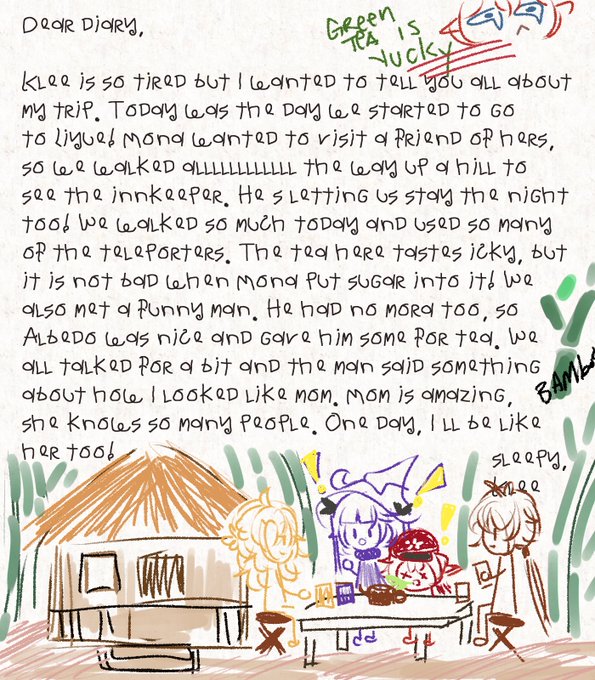 Dear Diary,
Green
Tea is
yucky
Klee is so tired but I wanted to tell you all about
my trip. Today was the day we started to go
to Liyue! Mona wanted to visit a friend of hers,
so we walked allllllllllll the way up a hill to
see the innkeeper. He s letting us stay the night
too! We walked so much today and used so many
of the teleporters. The tea here tastes icky, but
it is not bad when Mona put sugar into it! We
also met a funny man. He had no mora too, so
Albedo was nice and gave him some for tea. We
all talked for a bit and the man said something
about how I looked like mom. Mom is amazing,
she knows so many people. One day, I ll be like
her too!
Bamboo
sleepy,
Klee